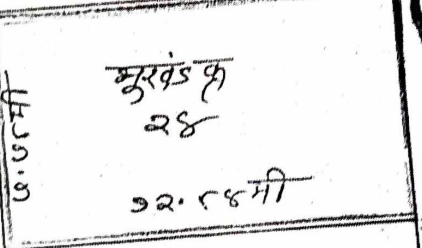 भुखंड क्र
२४
१२.८४मी
७.७८मी